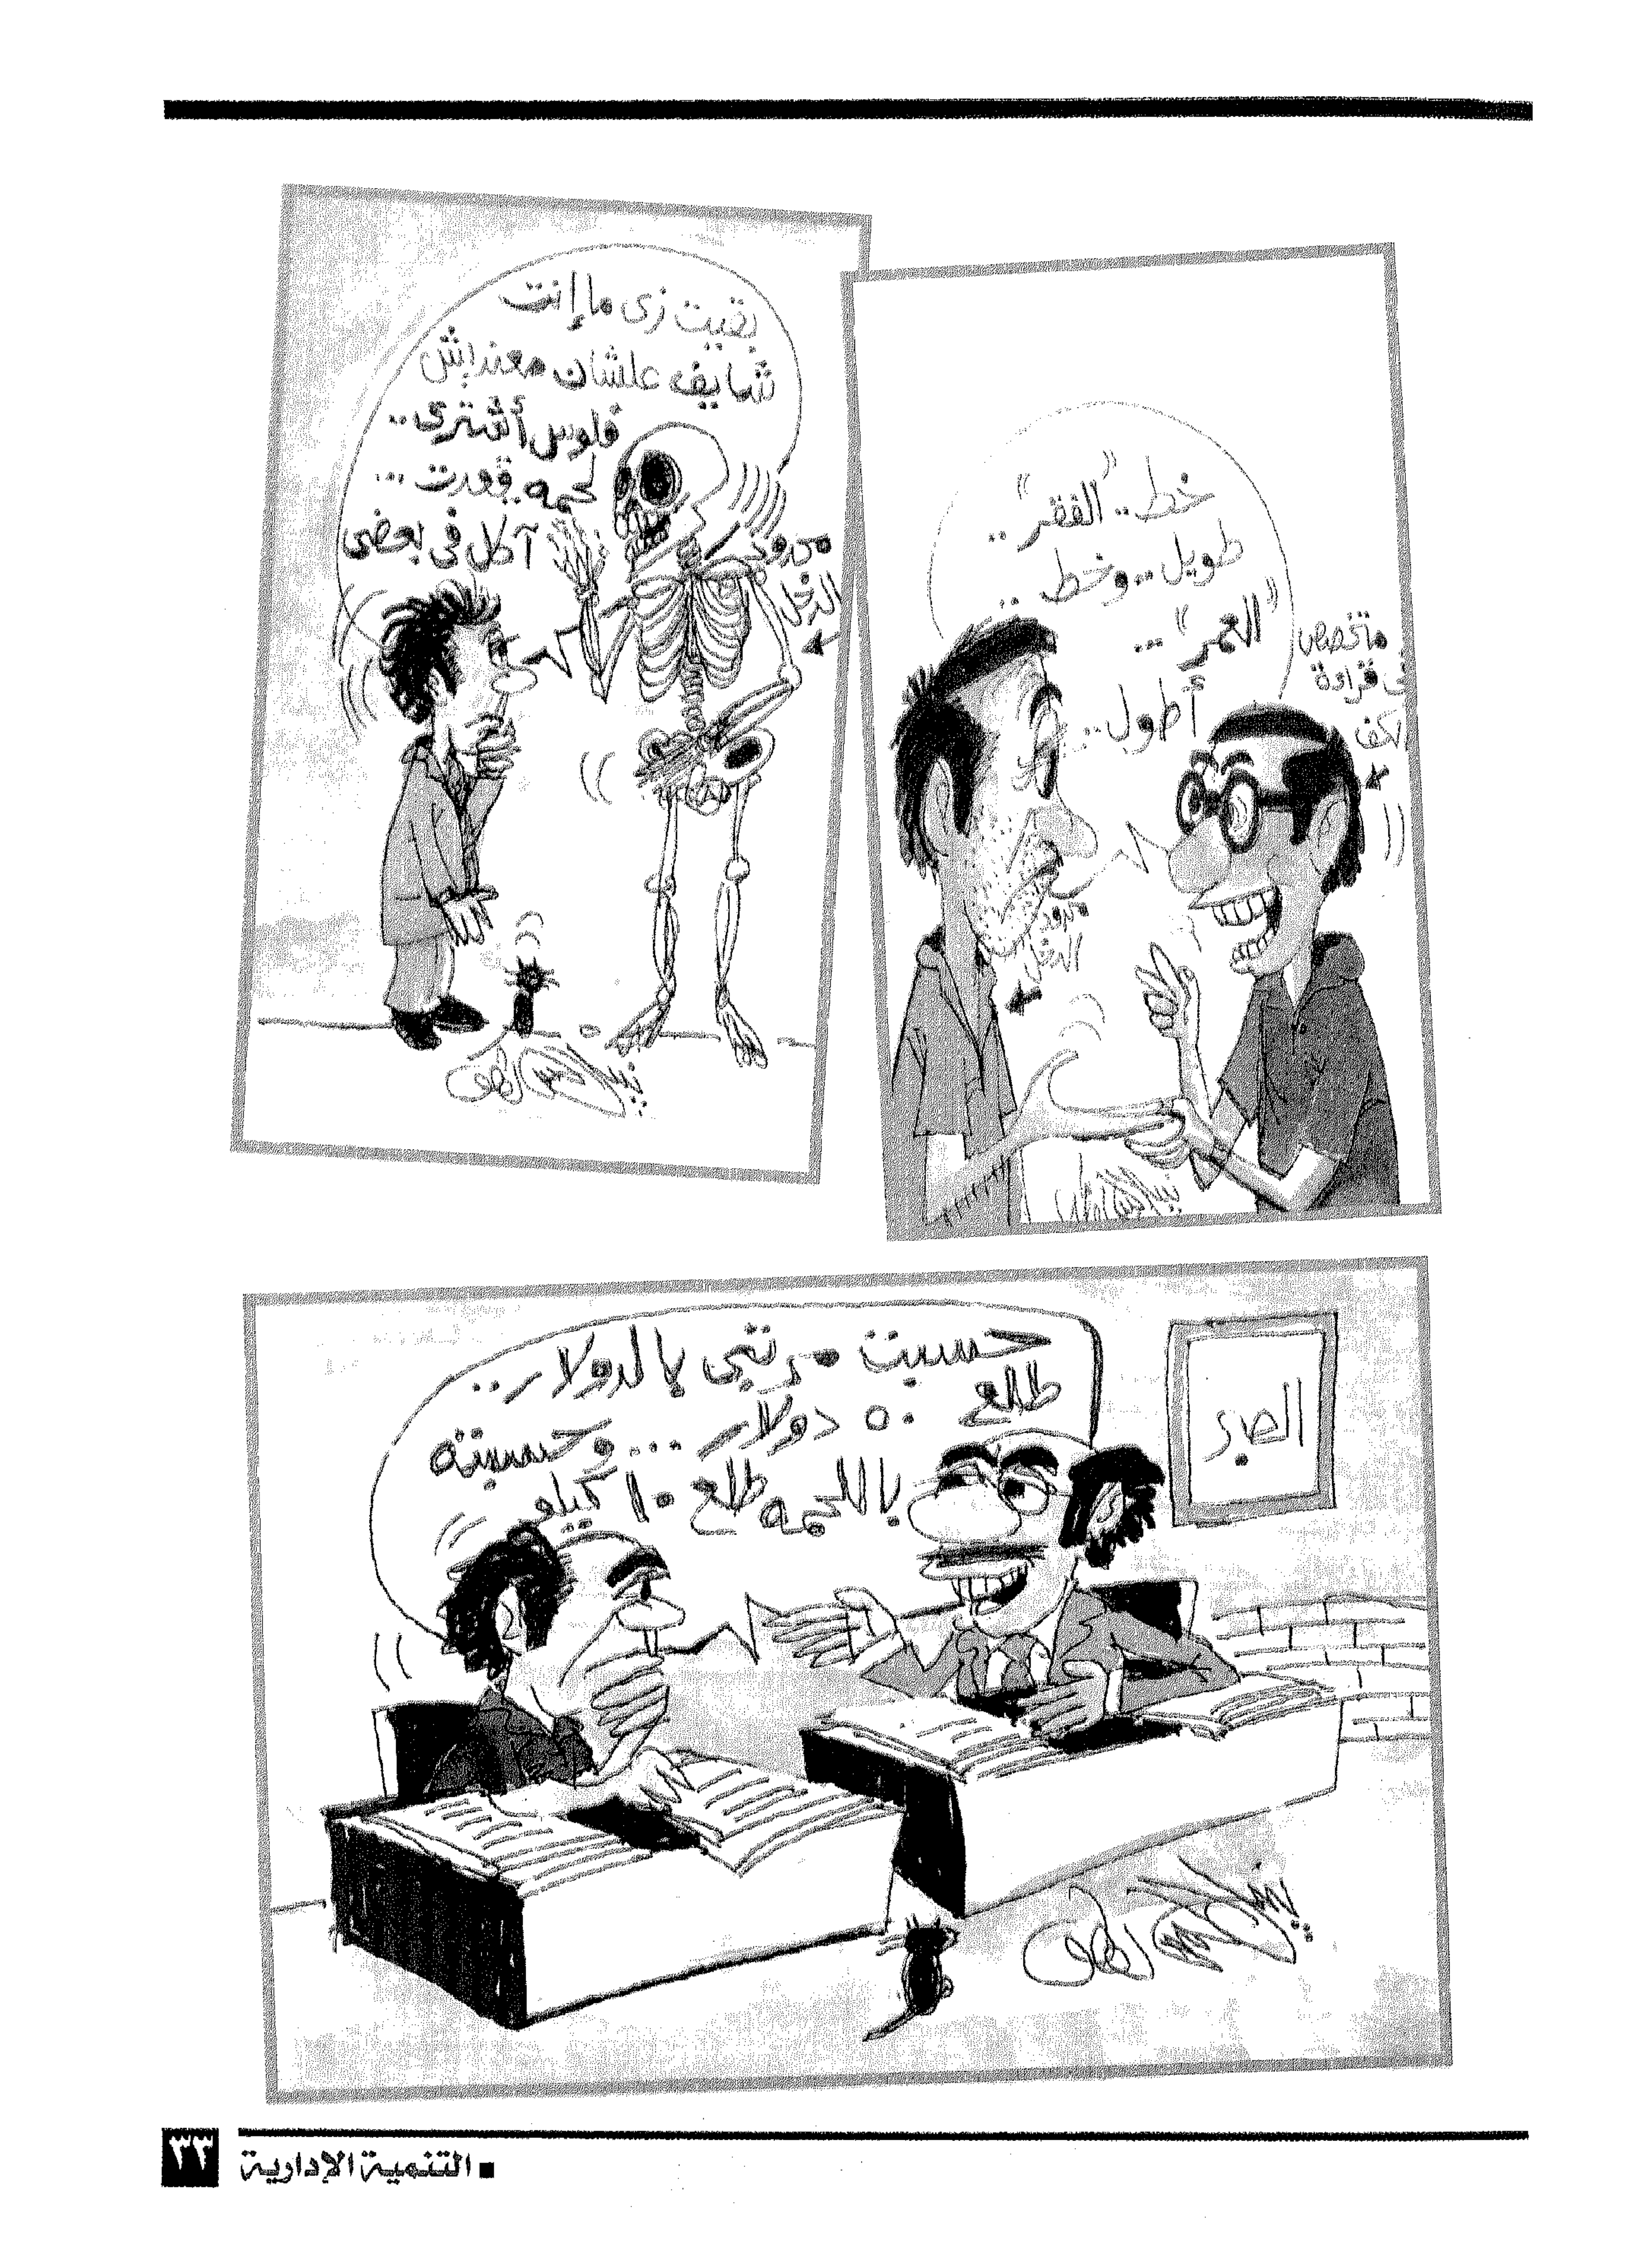 بقيت زى ما إنت
شايف علشان معنديش
فلوس أشترى..
لحمه قعدت...
آكل فى بعضى
محدود
الدخل
خط.. "الفقر"..
طويل.. وخط..
"العمر"...
أطول..
متخصص
فى قراءة
الكف
محدود
الدخل
حسبت مرتبى بالدولار..
طلع ٥٠ دولار... وحسبته
باللحمه طلع ١٠ كيلو
الصبر
٣٣
التنمية الإدارية